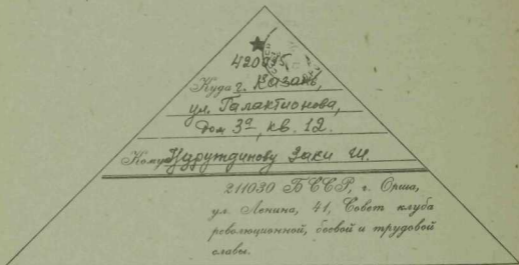 420015
Куда г. Казань,
ул. Галактионова,
Дом 3а, кв. 12.
Кому Нуруждинову Заки Ш.
211030 БССР, г. Орша,
ул. Ленина, 41, Совет клуба
революционной, боевой и трудовой
славы.